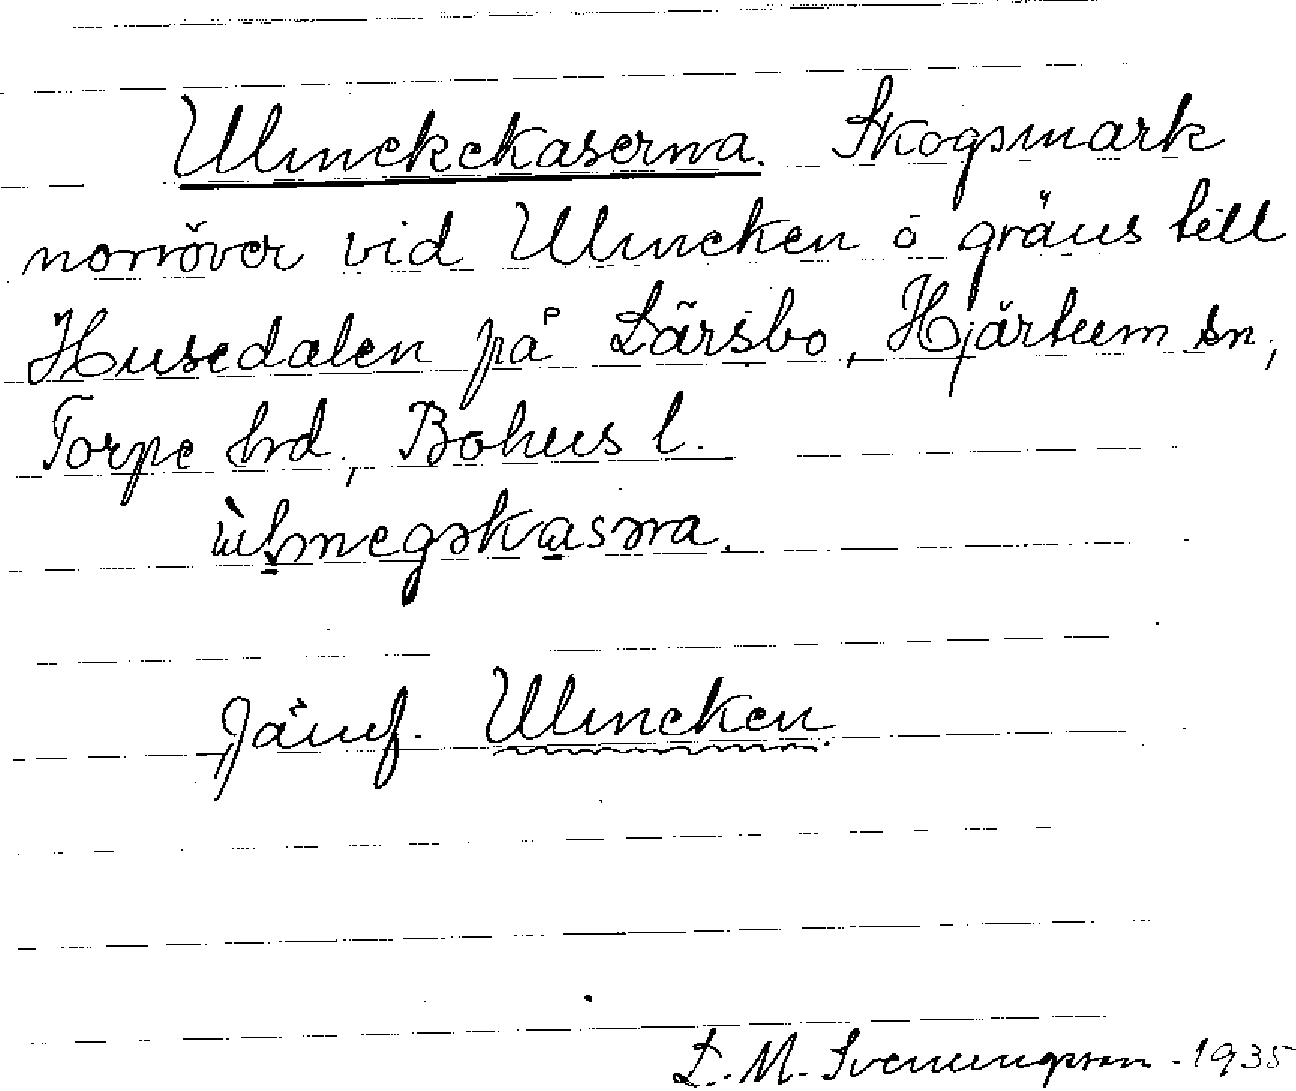 Ulmekekaserna. Skogsmark
norröver vid Ulmeken ö gräns till
Husedalen på Lärsbo, Hjärtum sn,
Torpe hrd, Bohus l.
ùlmegəkasəra.
Jämf. Ulmeken
L. M. Svenungsson - 1935